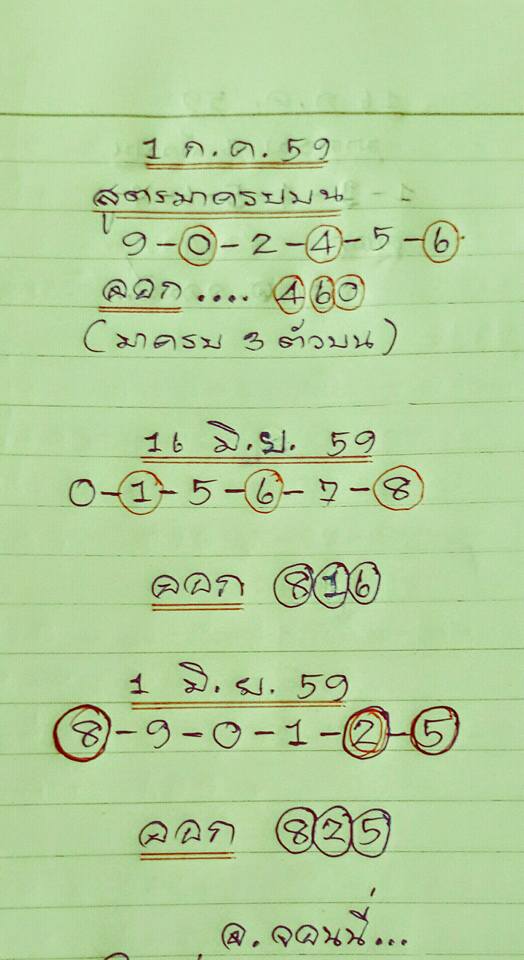 1 ก.ค. 59
สูตรมาครบบน
9-0-2-4-5-6.
ออก.... 460
(มาครบ 3 ตัวบน)
16 มิ.ย. 59
0-1-5-6-7-8
ออก 816
1 มิ.ย. 59
8-9-0-1-2-5
ออก 825
อ. จอนนี่...